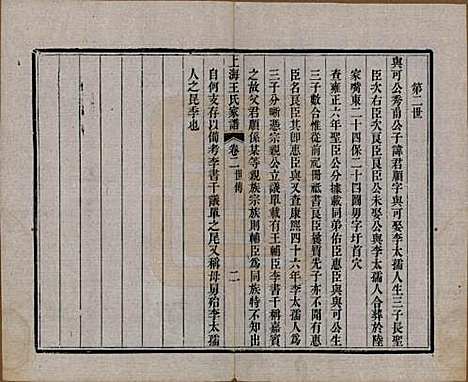 第二世
與可公秀甫公子諱君順字與可娶李太孺人生三子長聖
臣次右臣次良臣良臣公未娶公與李太孺人合葬於陸
家嘴東二十四保二十四圖男字圩首穴
查雍正六年聖臣公分據載同弟佑臣惠臣與與可公生
三子數合惟從前祀冊祗書良臣嚳賓先子亦不聞有惠
臣名良臣其即惠臣與又查康熙四十六年李太孺人為
三子分晰憑宗親公立議單載有王輔臣李書干稱嘉賓
之故父君順係某等親族宗族則輔臣為同族特不知出
自何支存以備考李書干議單之尾又稱母舅殆李太孺
人之昆季也
上海王氏家譜
卷二世傳
二